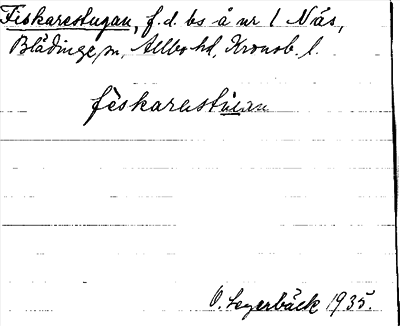 Fiskarestugan, f.d. bs å nr 1 Näs,
Blädinge sn, Allbo hd, Kronob. l.
fiskarastúgan
O. Legerbäck 1935.